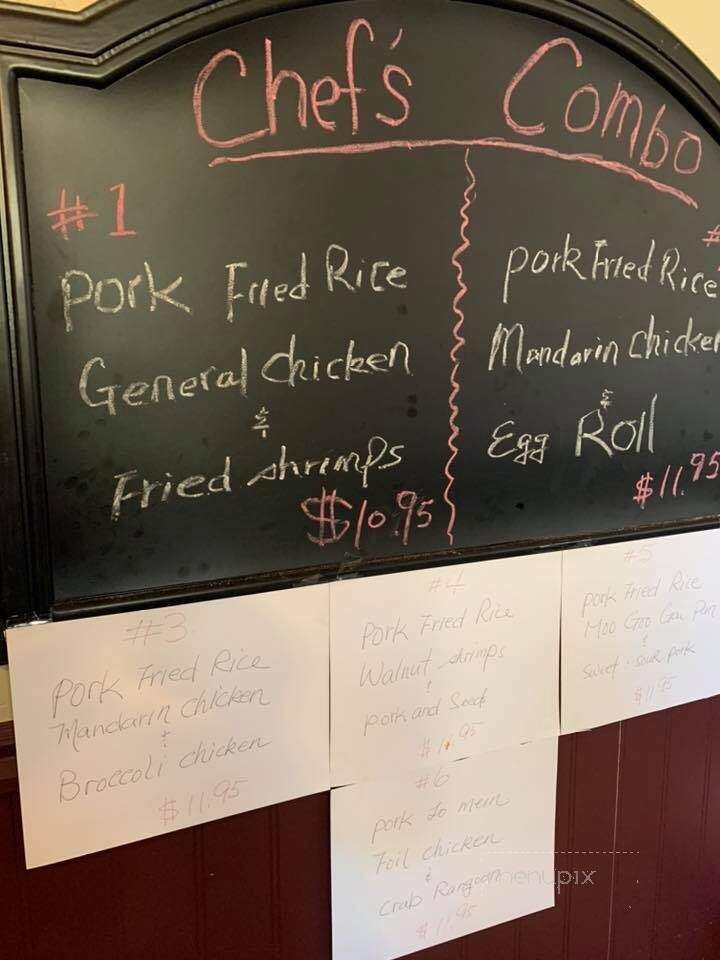 Chef's Combo
#1
Pork Fried Rice
General Chicken
&
Fried shrimps
$10.95
#
Pork Fried Rice
Mandarin Chicken
&
Egg Roll
$11.95
#3
Pork Fried Rice
Mandarin Chicken
&
Broccoli chicken
$11.95
#4
Pork Fried Rice
Walnut shrimps
&
Pork and Seed
$11.95
#5
Pork Fried Rice
Moo Goo Gai Pan
&
Sweet & sour pork
$11.95
#6
pork Lo mein
Foil chicken
&
Crab Rangoon
$11.95
menupix